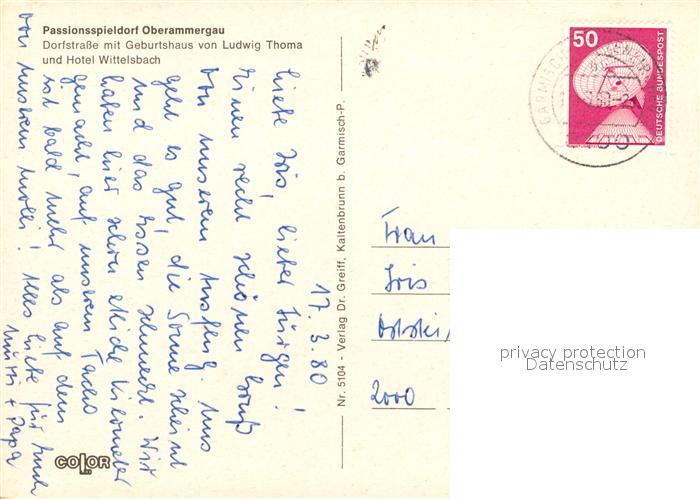 Passionsspieldorf Oberammergau
Dorfstraße mit Geburtshaus von Ludwig Thoma
und Hotel Wittelsbach
17. 3. 80
Liebe Iris, lieber Jürgen!
Einen recht schönen Gruß
von unserem Ausflug. Uns
geht es gut, die Sonne scheint
und das Essen schmeckt. Wir
haben hier schon etliche Kilometer
gemacht, auf unserem Tacho
ist bald mehr als auf dem
von unserem ! Alles Liebe für Euch
Mutti + Papa
Nr. 5104 - Verlag Dr. Greiff, Kaltenbrunn b. Garmisch-P.
COLOR
50
DEUTSCHE BUNDESPOST
GARMISCH
Frau
Iris
2000
privacy protection
Datenschutz